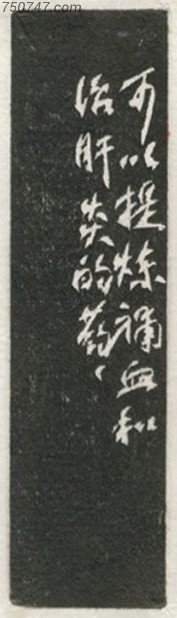 750747.com
可以提炼补血和
治肝炎的药、